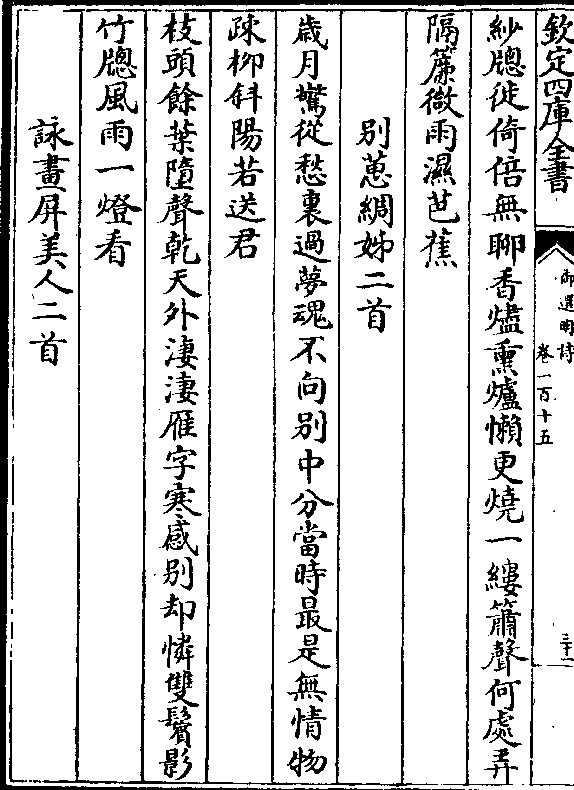 欽定四庫全書
御選明詩
卷一百十五
三十一
紗牕徙倚倍無聊香燼熏爐懶更燒一縷簫聲何處弄
隔簾微雨濕芭蕉
别蕙綢姊二首
歲月驚從愁裏過夢魂不向别中分當時最是無情物
疎栁斜陽若送君
枝頭餘葉墮聲乾天外淒淒雁字寒感别却憐雙鬢影
竹牕風雨一燈看
詠畫屏美人二首